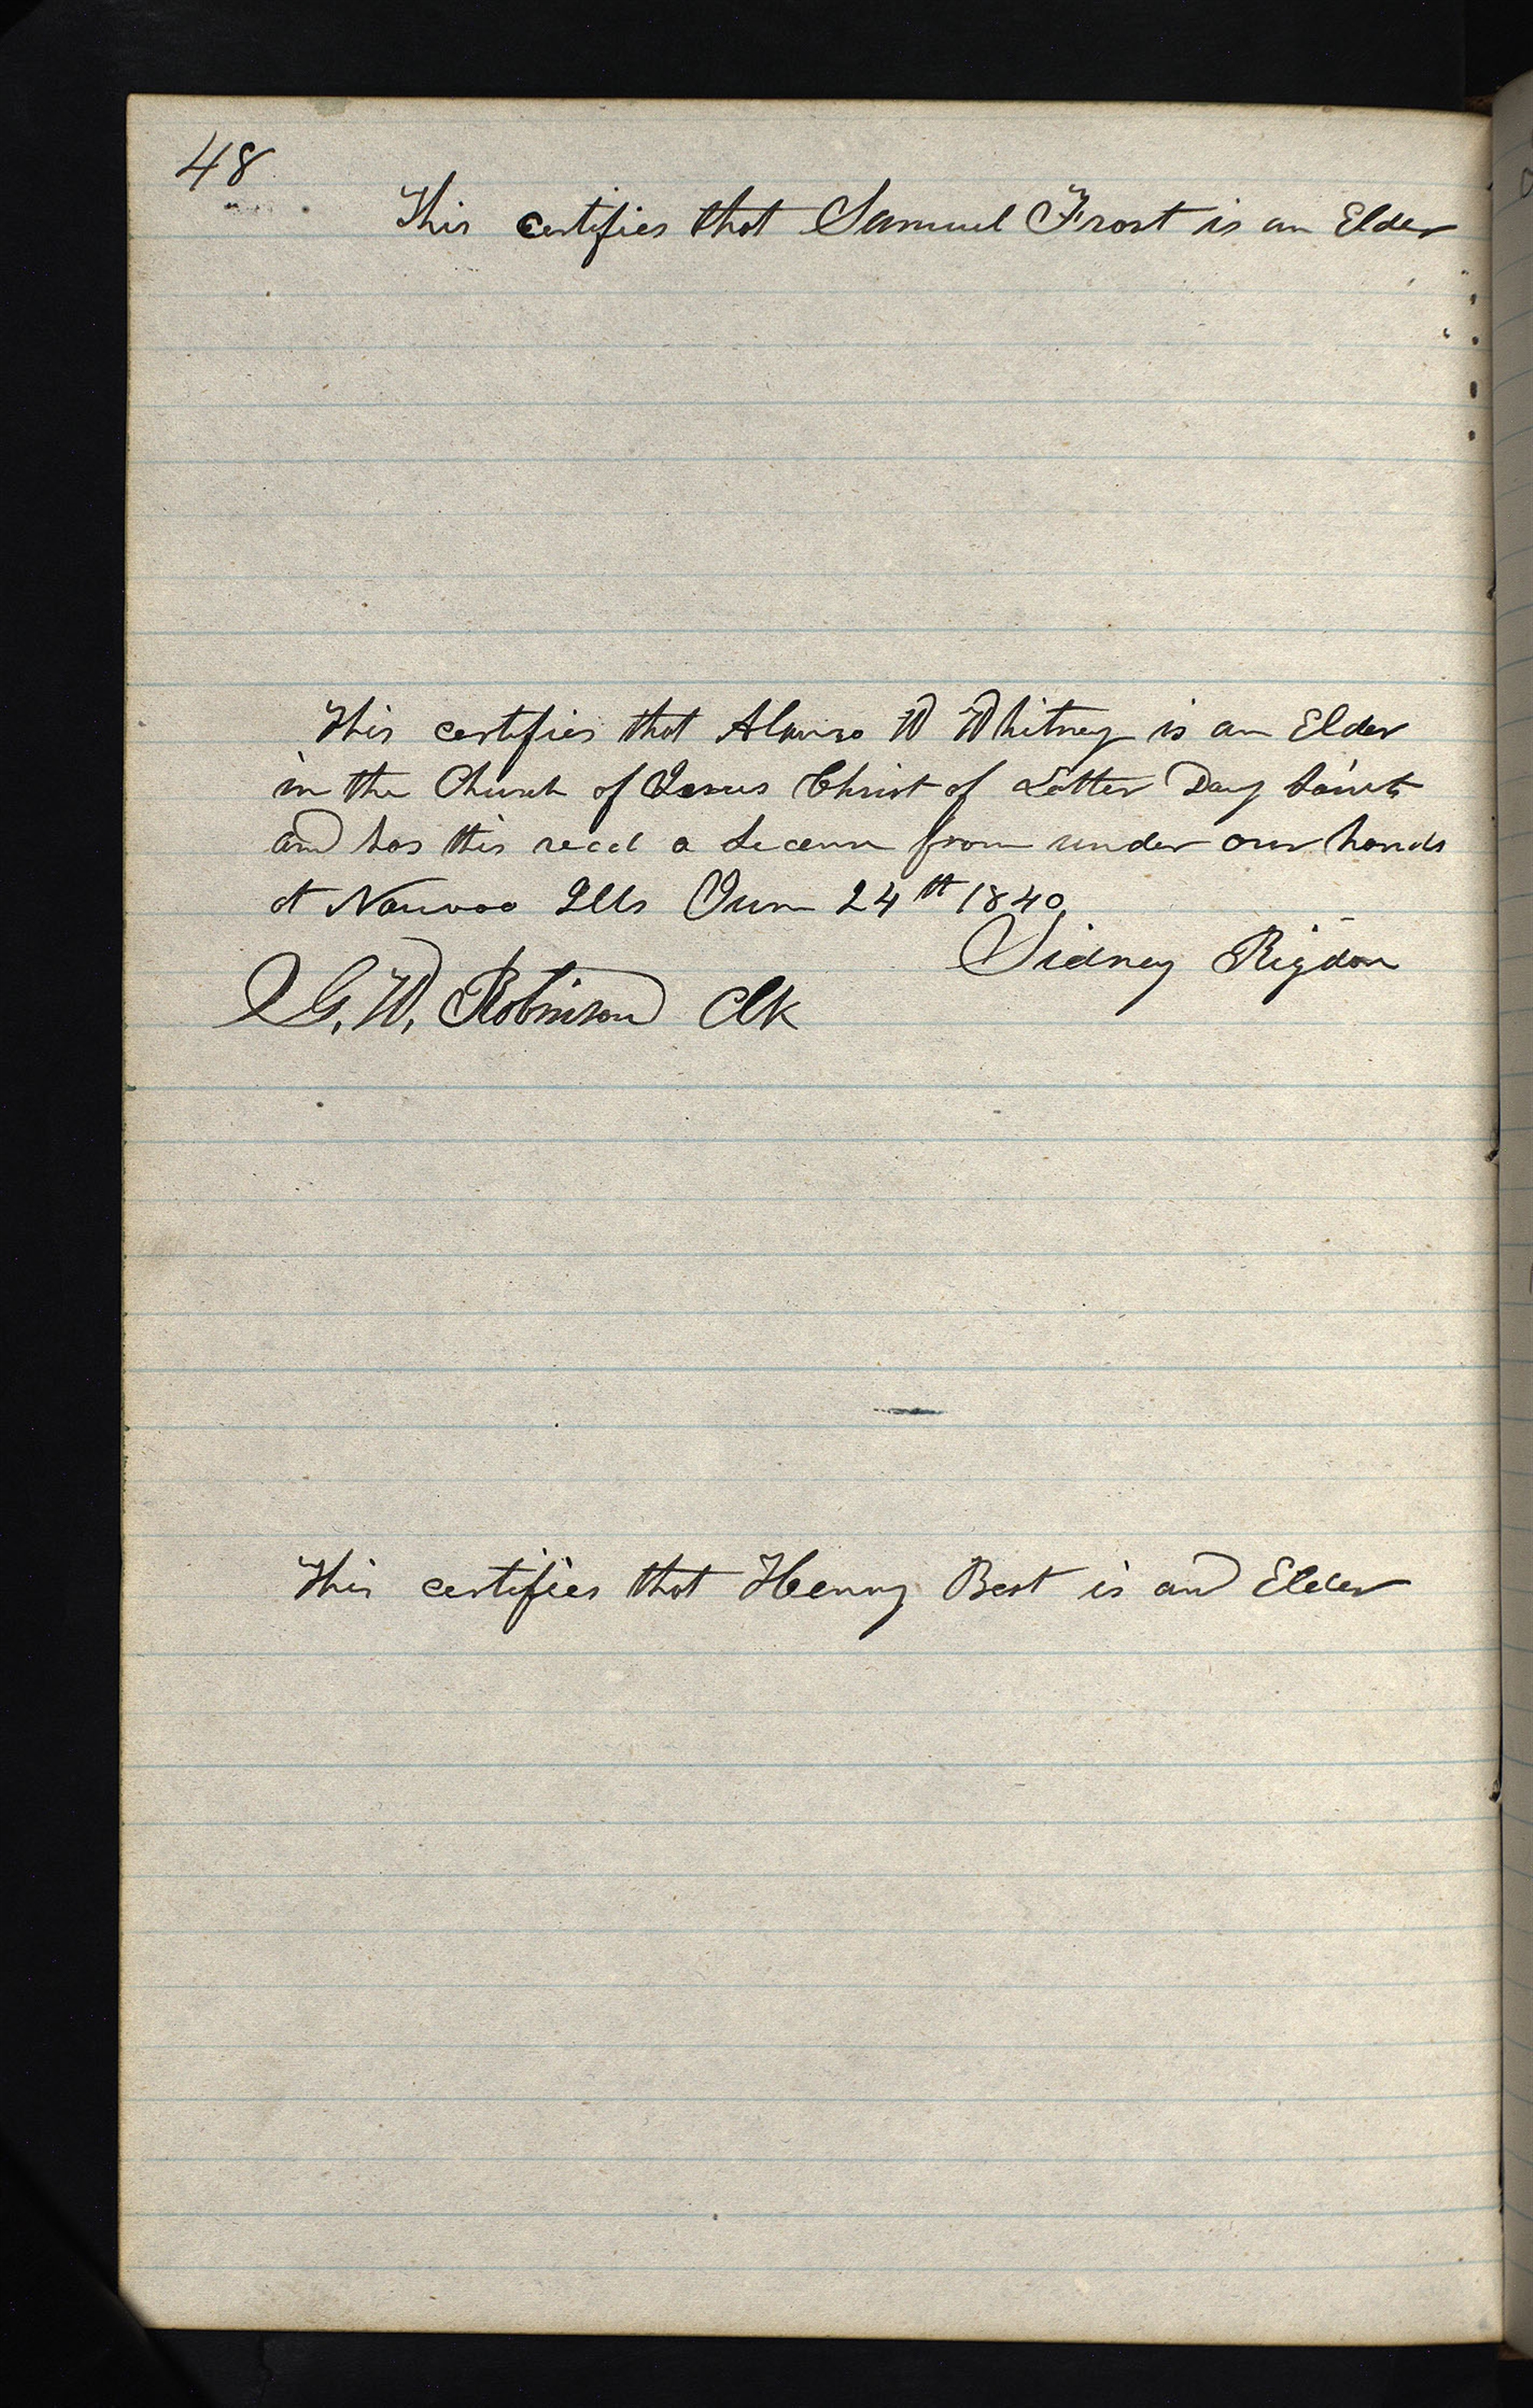 48
This certifies that Samuel Frost is an Elder
This certifies that Alonzo W Whitney is an Elder
in the Church of Jesus Christ of Latter Day Saints
and has this recd a Licenc from under our hands
at Nauvoo Ills June 24th 1840
Sidney Rigdon
G. W. Robinson Clk
This certifies that Henry Best is and Elder